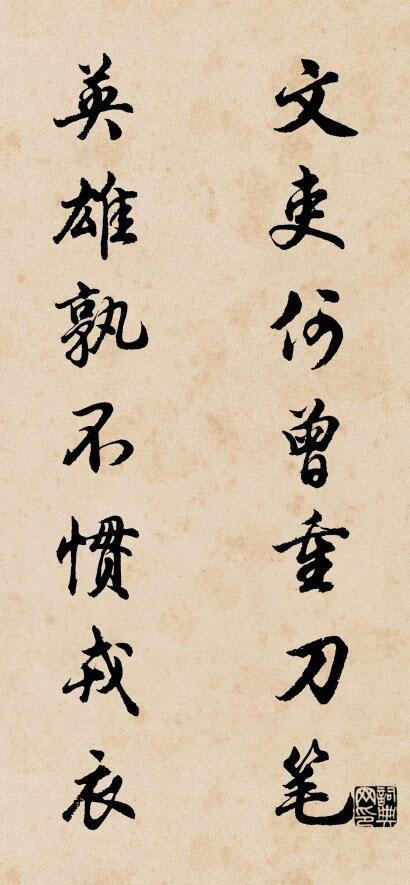 文吏何曾重刀笔
英雄孰不惯戎衣
词典网印